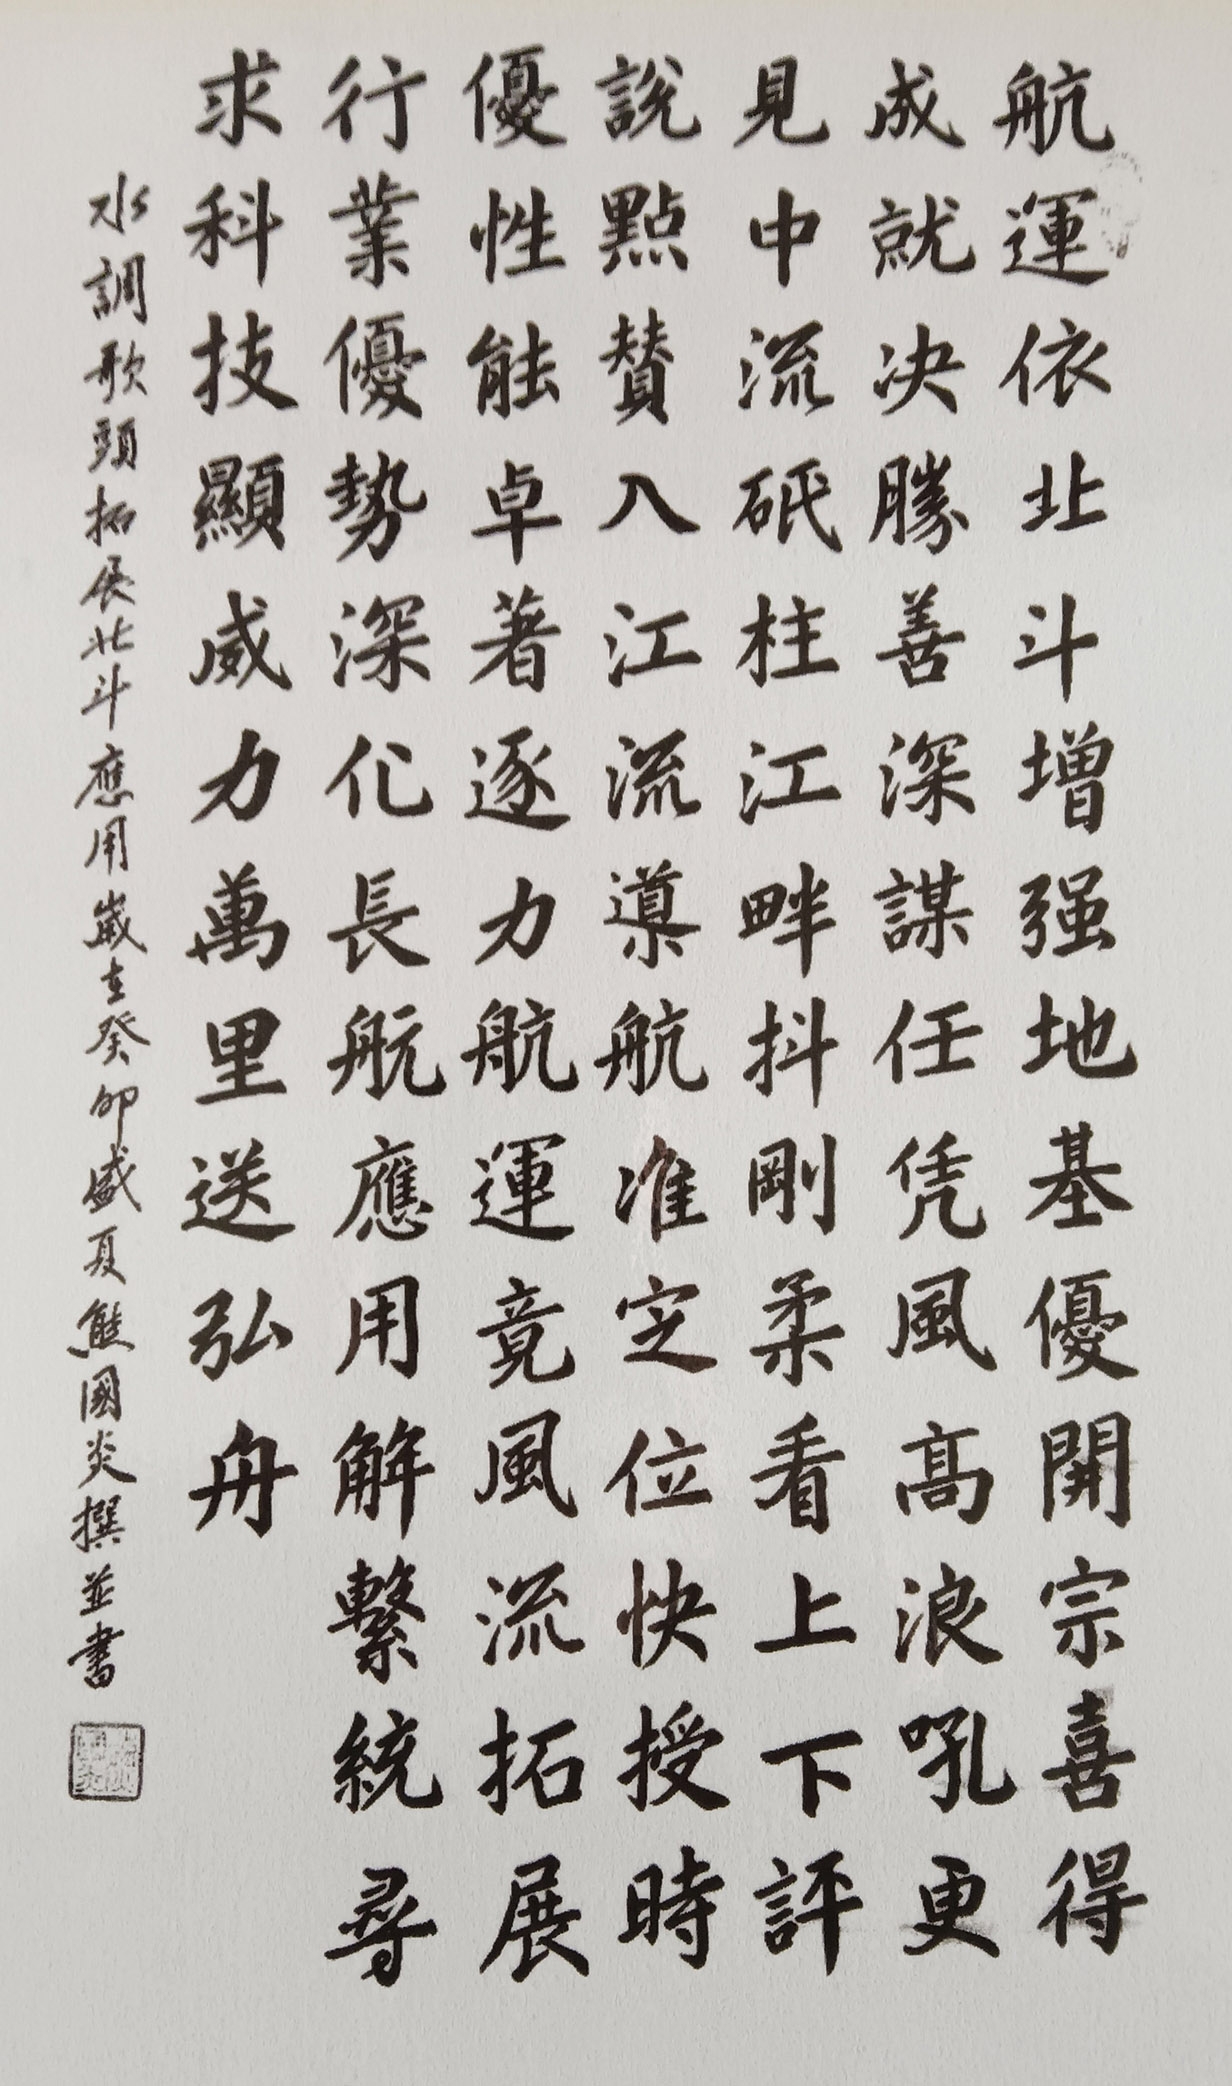 航運依北斗增强地基優開宗喜得
成就决勝善深謀任凭風高浪吼更
見中流砥柱江畔抖剛柔看上下評
說點贊入江流導航准定位快授時
優性能卓著逐力航運竟風流拓展
行業優勢深化長航應用解繫統尋
求科技顯威力萬里送弘舟
水調歌頭拓展北斗應用歲在癸卯盛夏熊國炎撰並書